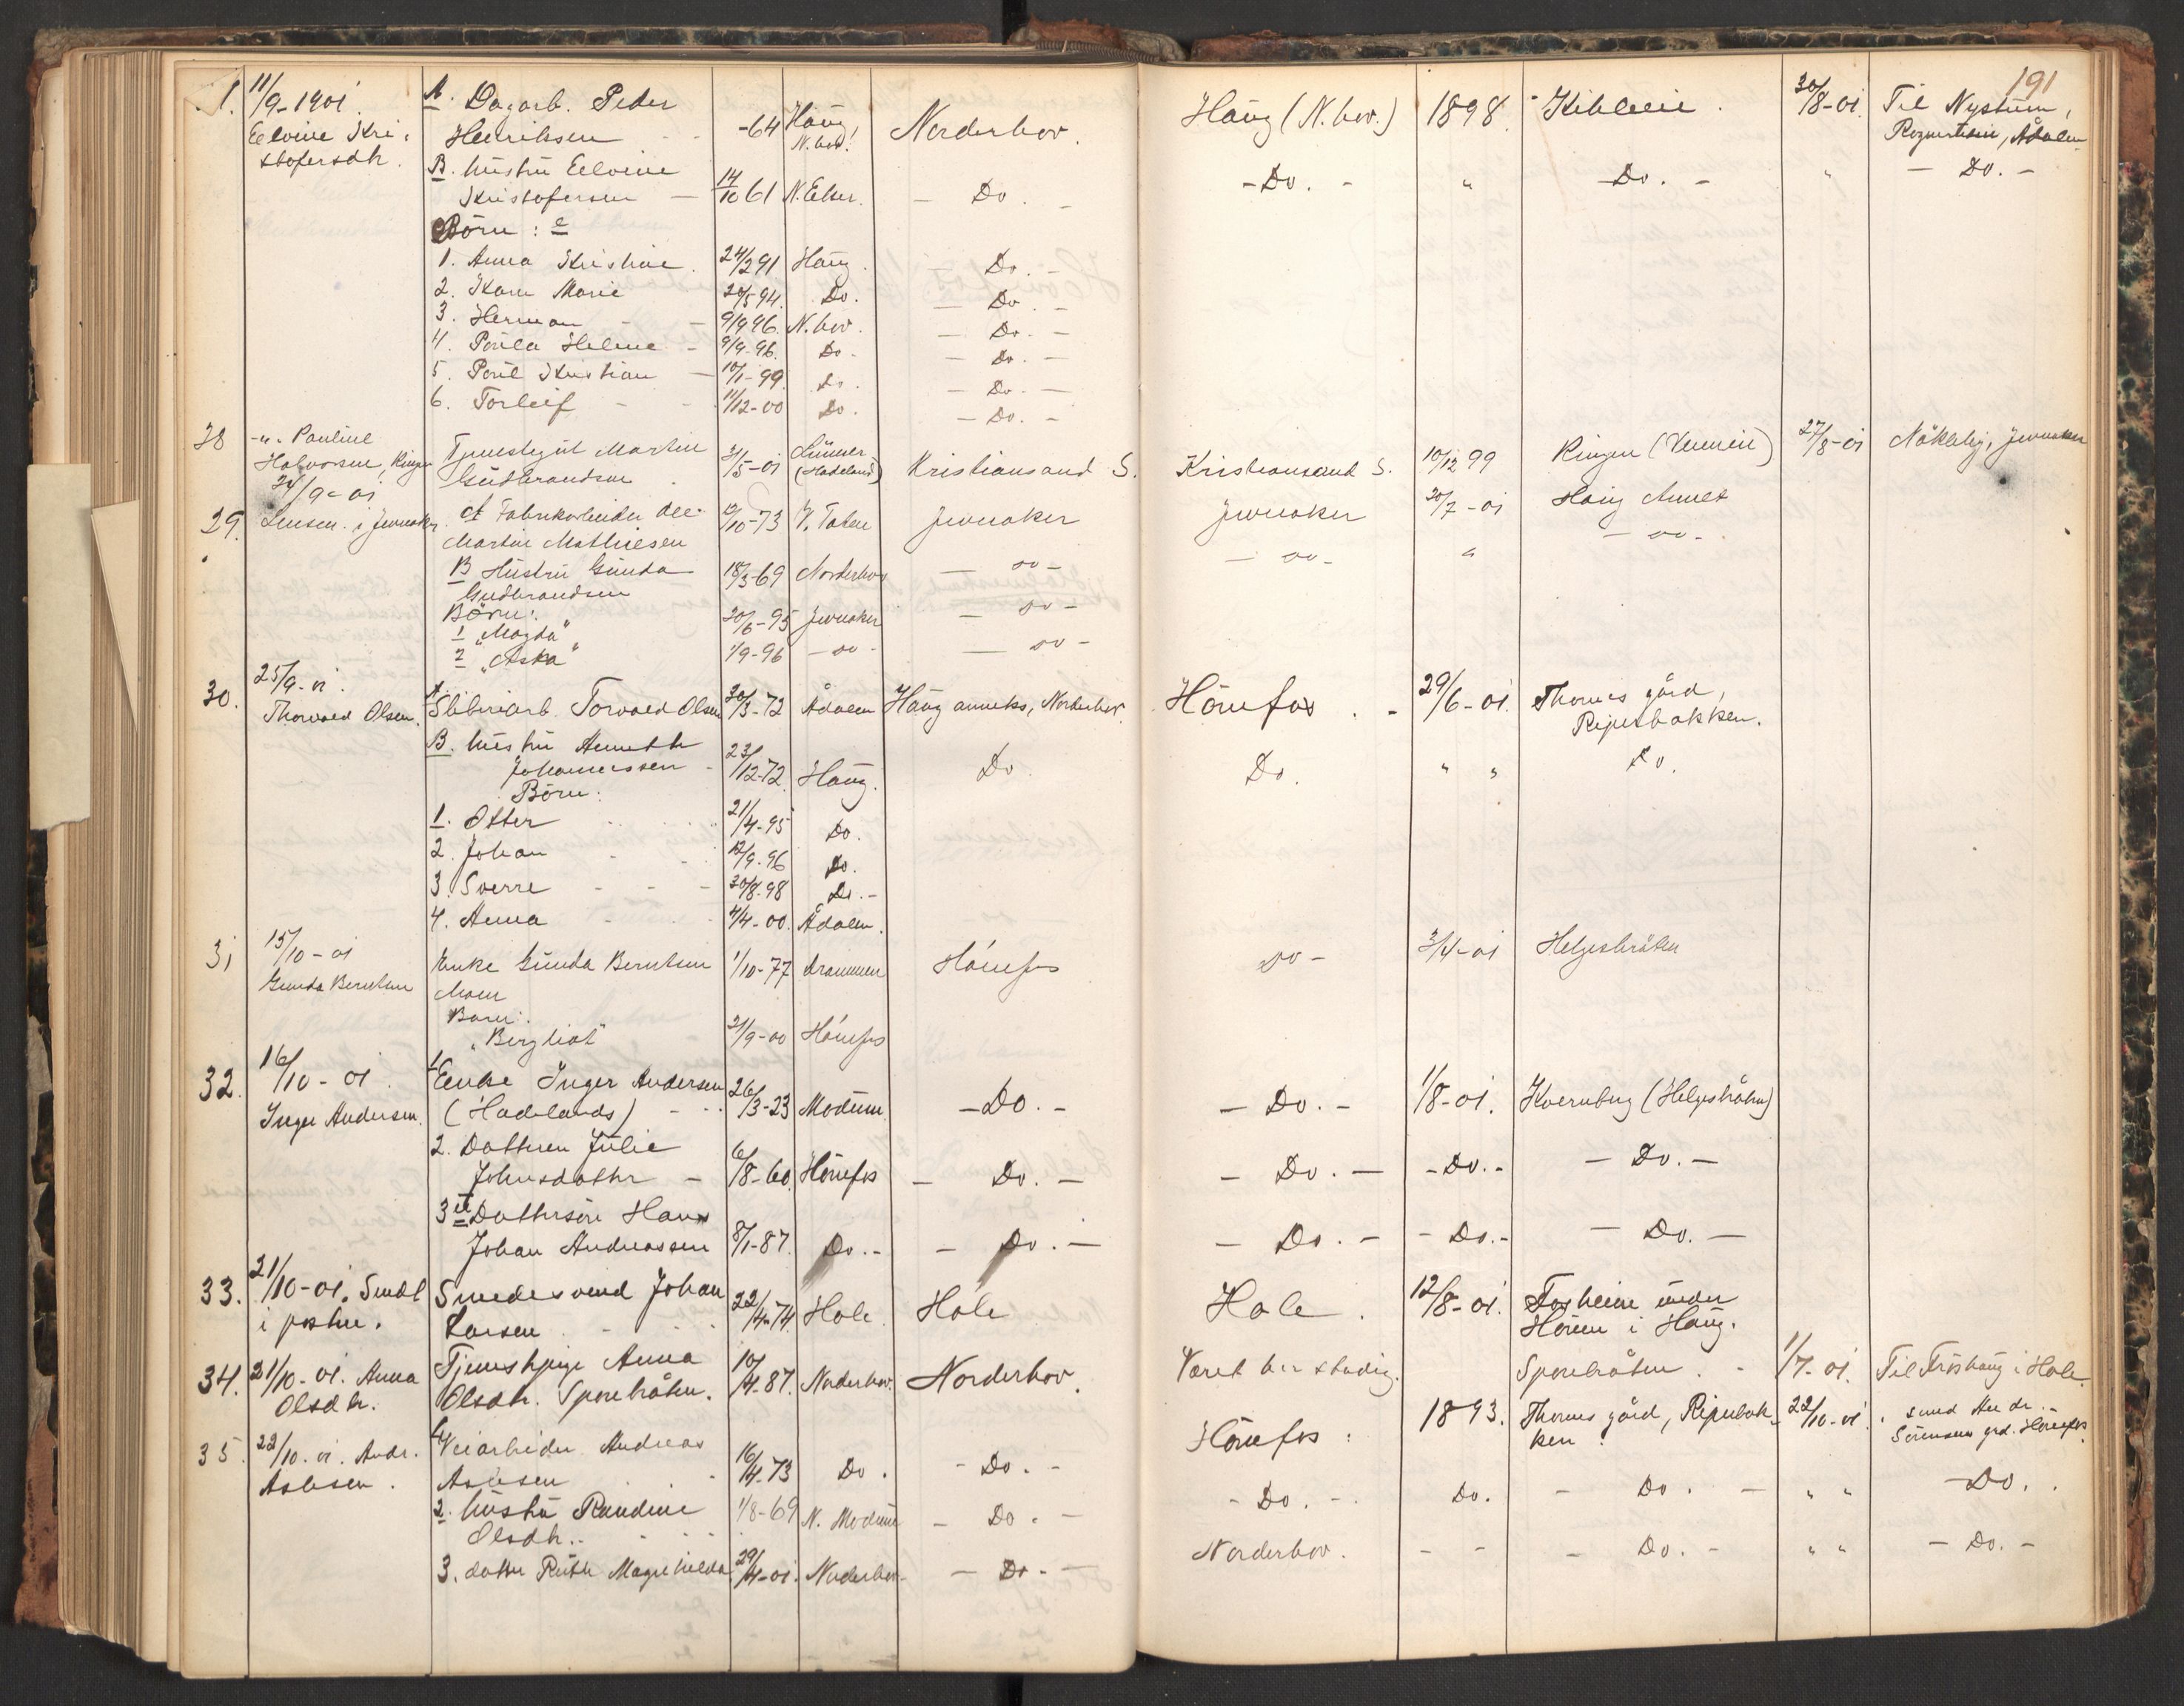 191
11/9-1901. A. Dagarb. Peder -64 Haug, Norderhov. Haug (N.hov.) 1898 30/8-01 Til Nystuen,
Helvine Kri- Henriksen N.hov. Ådalen
stofersdtr. B. hustru Helvine
Kristofersen 14/10 61 N. Eker. Do. Do. " Do. " Do.
Børn:
1. Anna Kristine 24/2 91 Haug. Do.
2. Karen Marie 20/5 94. Do. Do.
3. Herman 9/9 96. N.hov. Do.
4. Poula Helene 9/9-96. Do. Do.
5. Poul Kristian 10/1-99. Do. Do.
6. Torleif 11/12-00 Do. Do.
28 Pauline Martin 31/5-01 Lunner Kristiansand S. Kristiansand S. 10/12 99 Ringen 27/8-01 Jevnaker
Halvorsen, Gudbrandsen (Hadeland)
24/9-01
29. i Jevnaker A Fabrikarbeider Ole 10-73 V. Toten Jevnaker Jevnaker 20/7-01 Haug Annex
Martin Mathiesen
B Hustru Gunda 18/3-69 Norderhov - do - - do - " - do -
Gudbrandsen
Børn:
1 "Magda" 20/6-95 Jevnaker - do -
2 "Aska" 1/9-96 - do - - do -
30. 25/9-01. A. Sliberiarb. Torvald Olsen 30/3-72 Ådalen Haug anneks, Norderhov. Hönefos 29/6-01. Thomes gård,
Thorvald Olsen. Ripenbakken.
B. hustru Anneth
Johannessen 23/12-72 Haug. Do. Do. " " Do.
Børn:
1. Otter 21/4-95 Do.
2. Johan 12/9-96 Do.
3. Sverre 30/8-98 Do.
4. Anna 4/4-00. Ådalen.
31 15/10-01 Enke Gunda Berntsen 1/10-77 Drammen Hönefos - do - 3/4-01 Helgesbråten
Gunda Berntsen Moen
Barn:
"Bergliot" 21/9-00 Hönefos
32. 16/10-01. 1. Enke Inger Andersen 26/3-23 Modum. Do. Do. 1/8-01. Kvernbug (Helgesbråten)
Inger Andersen. (Hadelands)
2. Datteren Julie
Johnsdatter 6/8-60. Hönefos Do. Do. Do. Do.
3. Dattersøn Hans
Johan Andreassen 8/1-87. Do. Do. Do. Do. Do.
33. 21/10-01. Sendt Smedesvend Johan 22/4-74 Hole. Hole Hole. 12/8-01. Fosheim under
i posten. Larsen Hönen i Haug.
34. 21/10-01. Anna Tjenestepige Anna 10/4-87. Norderhov. Norderhov. Været her stadig. Sponebråten. 1/7-01. Til Frøshaug i Hole.
Olsdtr. Olsdtr. Sponebråten.
35. 22/10-01. Andr. 1. Veiarbeider Andreas Hönefos. 1893. Thomes gård, Ripenbak- 22/10-01.
Aslesen. Aslesen 16/4-73 Do. Do. ken. Sörensens grd. Hönefos.
2. hustru Randine 1/8-69 N. Modum Do. Do. Do. Do. " " Do.
Olsdtr.
3. datter Ruth Magnhilda. 29/4-01. Norderhov Do. Norderhov. - - Do. " " Do.